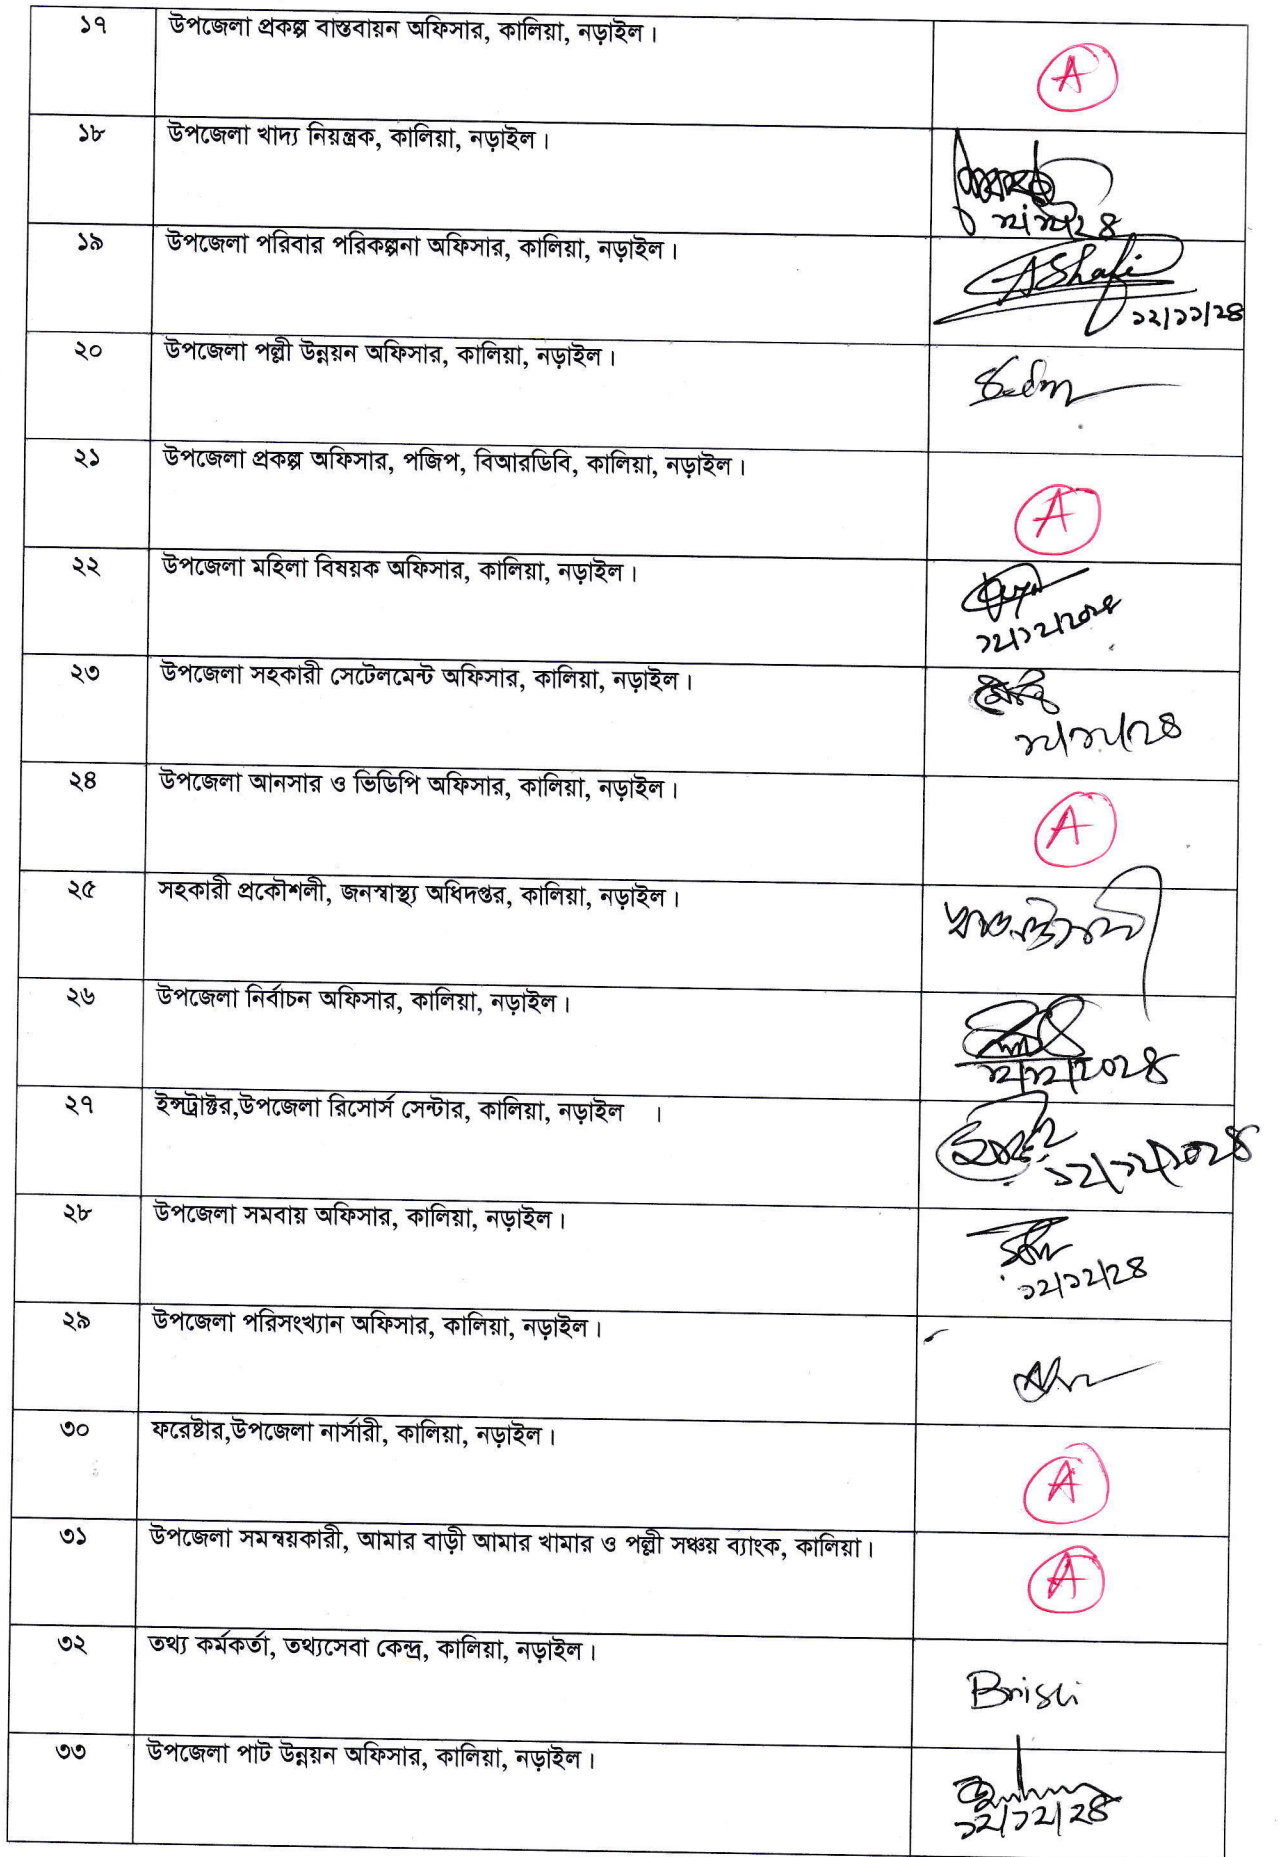 ১৭ উপজেলা প্রকল্প বাস্তবায়ন অফিসার, কালিয়া, নড়াইল।
A
১৮ উপজেলা খাদ্য নিয়ন্ত্রক, কালিয়া, নড়াইল।
১৯ উপজেলা পরিবার পরিকল্পনা অফিসার, কালিয়া, নড়াইল।
AShafi
১২/১১/২৪
২০ উপজেলা পল্লী উন্নয়ন অফিসার, কালিয়া, নড়াইল।
২১ উপজেলা প্রকল্প অফিসার, পজিপ, বিআরডিবি, কালিয়া, নড়াইল।
A
২২ উপজেলা মহিলা বিষয়ক অফিসার, কালিয়া, নড়াইল।
১২/১২/২০২৪
২৩ উপজেলা সহকারী সেটেলমেন্ট অফিসার, কালিয়া, নড়াইল।
১২/১২/২৪
২৪ উপজেলা আনসার ও ভিডিপি অফিসার, কালিয়া, নড়াইল।
A
২৫ সহকারী প্রকৌশলী, জনস্বাস্থ্য অধিদপ্তর, কালিয়া, নড়াইল।
২৬ উপজেলা নির্বাচন অফিসার, কালিয়া, নড়াইল।
১২/১২/২০২৪
২৭ ইন্সট্রাক্টর,উপজেলা রিসোর্স সেন্টার, কালিয়া, নড়াইল ।
১২/১২/২০২৪
২৮ উপজেলা সমবায় অফিসার, কালিয়া, নড়াইল।
১২/১২/২৪
২৯ উপজেলা পরিসংখ্যান অফিসার, কালিয়া, নড়াইল।
৩০ ফরেষ্টার,উপজেলা নার্সারী, কালিয়া, নড়াইল।
A
৩১ উপজেলা সমন্বয়কারী, আমার বাড়ী আমার খামার ও পল্লী সঞ্চয় ব্যাংক, কালিয়া।
A
৩২ তথ্য কর্মকর্তা, তথ্যসেবা কেন্দ্র, কালিয়া, নড়াইল।
Bristi
৩৩ উপজেলা পাট উন্নয়ন অফিসার, কালিয়া, নড়াইল।
১২/১২/২৪